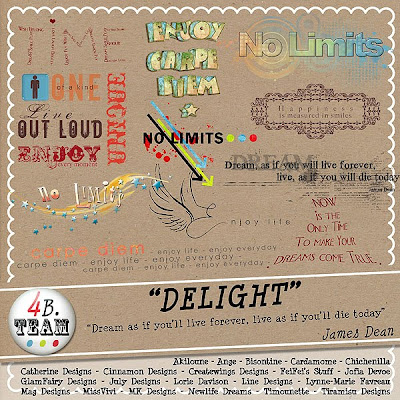 ENJOY
CARPE
DIEM
No Limits
ONE
of a kind
UNIQUE
Live
OUT LOUD
ENJOY
every moment
Happiness
is measured in smiles
NO LIMITS
DREAM
Dream, as if you will forever,
live, as if you will die today
James Dean
no limits
njoy life
NOW
is the
Only
Time
To make Your
DREAMS COME TRUE.
carpe diem - enjoy life - enjoy everyday
carpe diem - enjoy life - enjoy everyday
carpe diem - enjoy life - enjoy everyday
"DELIGHT"
4B.
TEAM
"Dream as if you'll live forever, live as if you'll die today"
James Dean
Akiloune - Ange - Bisontine - Cardamome - Chichenilla
Catherine Designs - Cinnamon Designs - Createwings Designs - FeiFei's Stuff - Jofia Devoe
GlamFairy Designs - July Designs - Lorie Davison - Line Designs - Lynne-Marie Favreau
Mag Designs - MissVivi - MK Designs - Newlife Dreams - Timounette - Tiramisu Designs